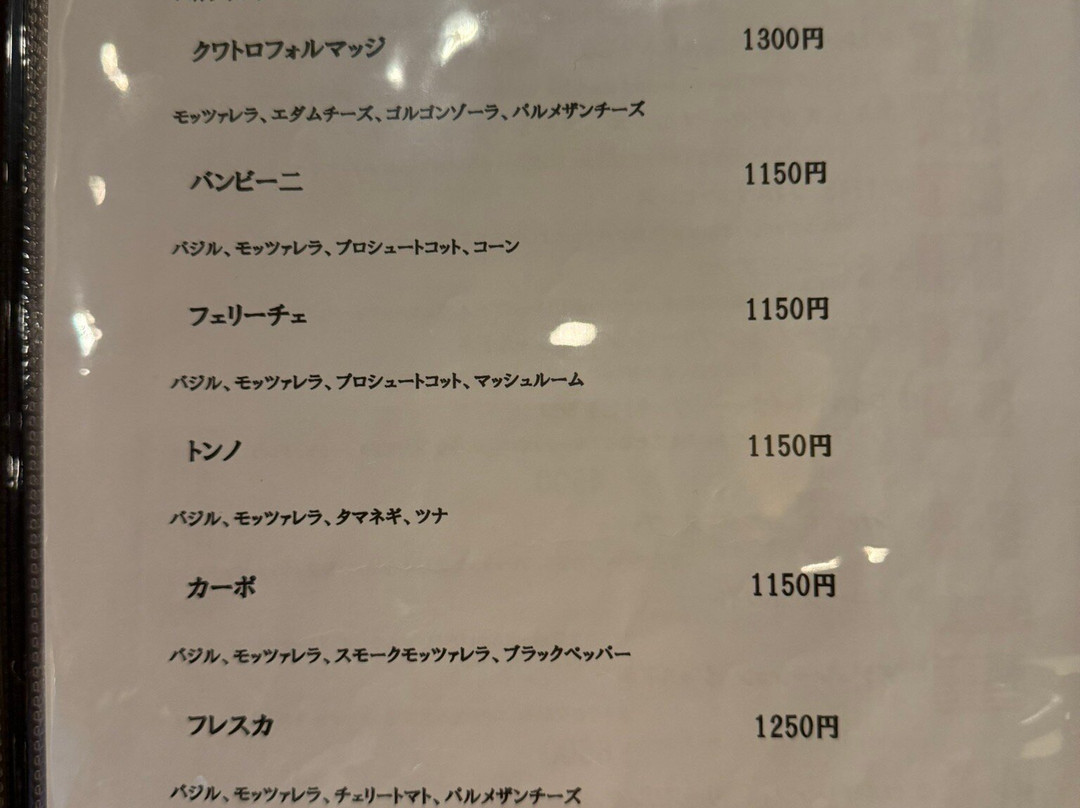 クワトロフォルマッジ 1300円
モッツァレラ、エダムチーズ、ゴルゴンゾーラ、パルメザンチーズ
バンビーニ 1150円
バジル、モッツァレラ、プロシュートコット、コーン
フェリーチェ 1150円
バジル、モッツァレラ、プロシュートコット、マッシュルーム
トンノ 1150円
バジル、モッツァレラ、タマネギ、ツナ
カーポ 1150円
バジル、モッツァレラ、スモークモッツァレラ、ブラックペッパー
フレスカ 1250円
バジル、モッツァレラ、チェリートマト、パルメザンチーズ